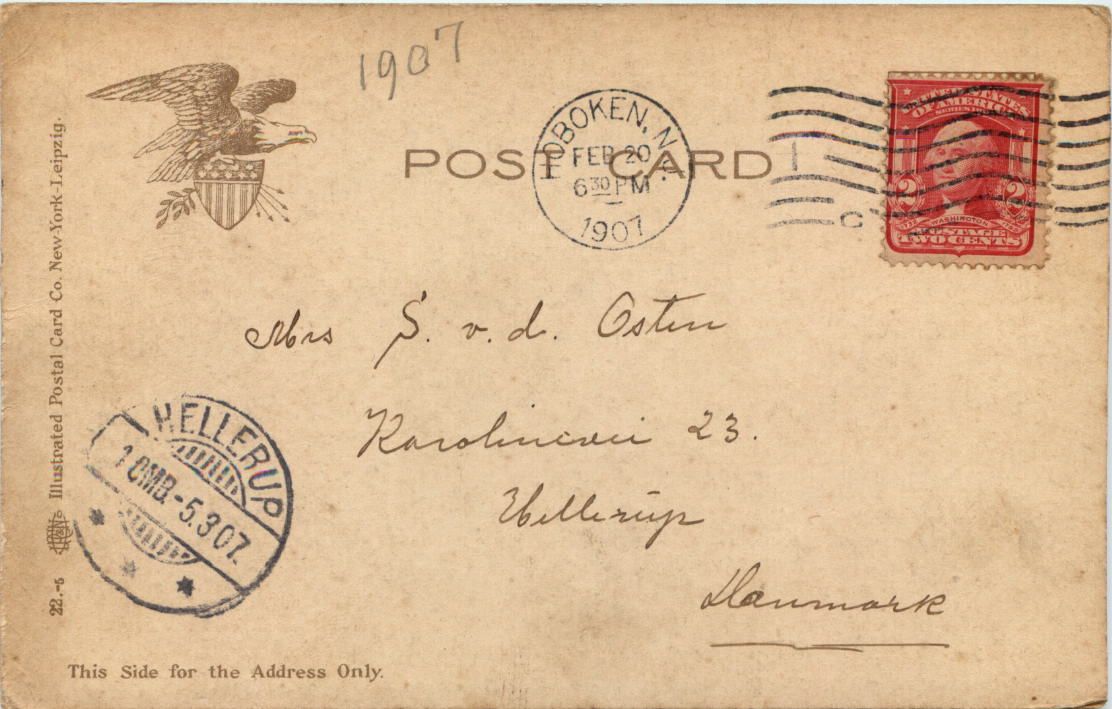 1907
POST CARD
HOBOKEN, N.J.
FEB 20
6 30 PM
1907
C
UNITED STATES
OF AMERICA
SERIES 1902
2 2
1732 WASHINGTON 1799
POSTAGE
TWO CENTS
Mrs S. v. d. Osten
Karolinevei 23.
Hellerup
Danmark
HELLERUP
1 OMB. -5.3 07.
Illustrated Postal Card Co. New-York-Leipzig.
22.-5
This Side for the Address Only.